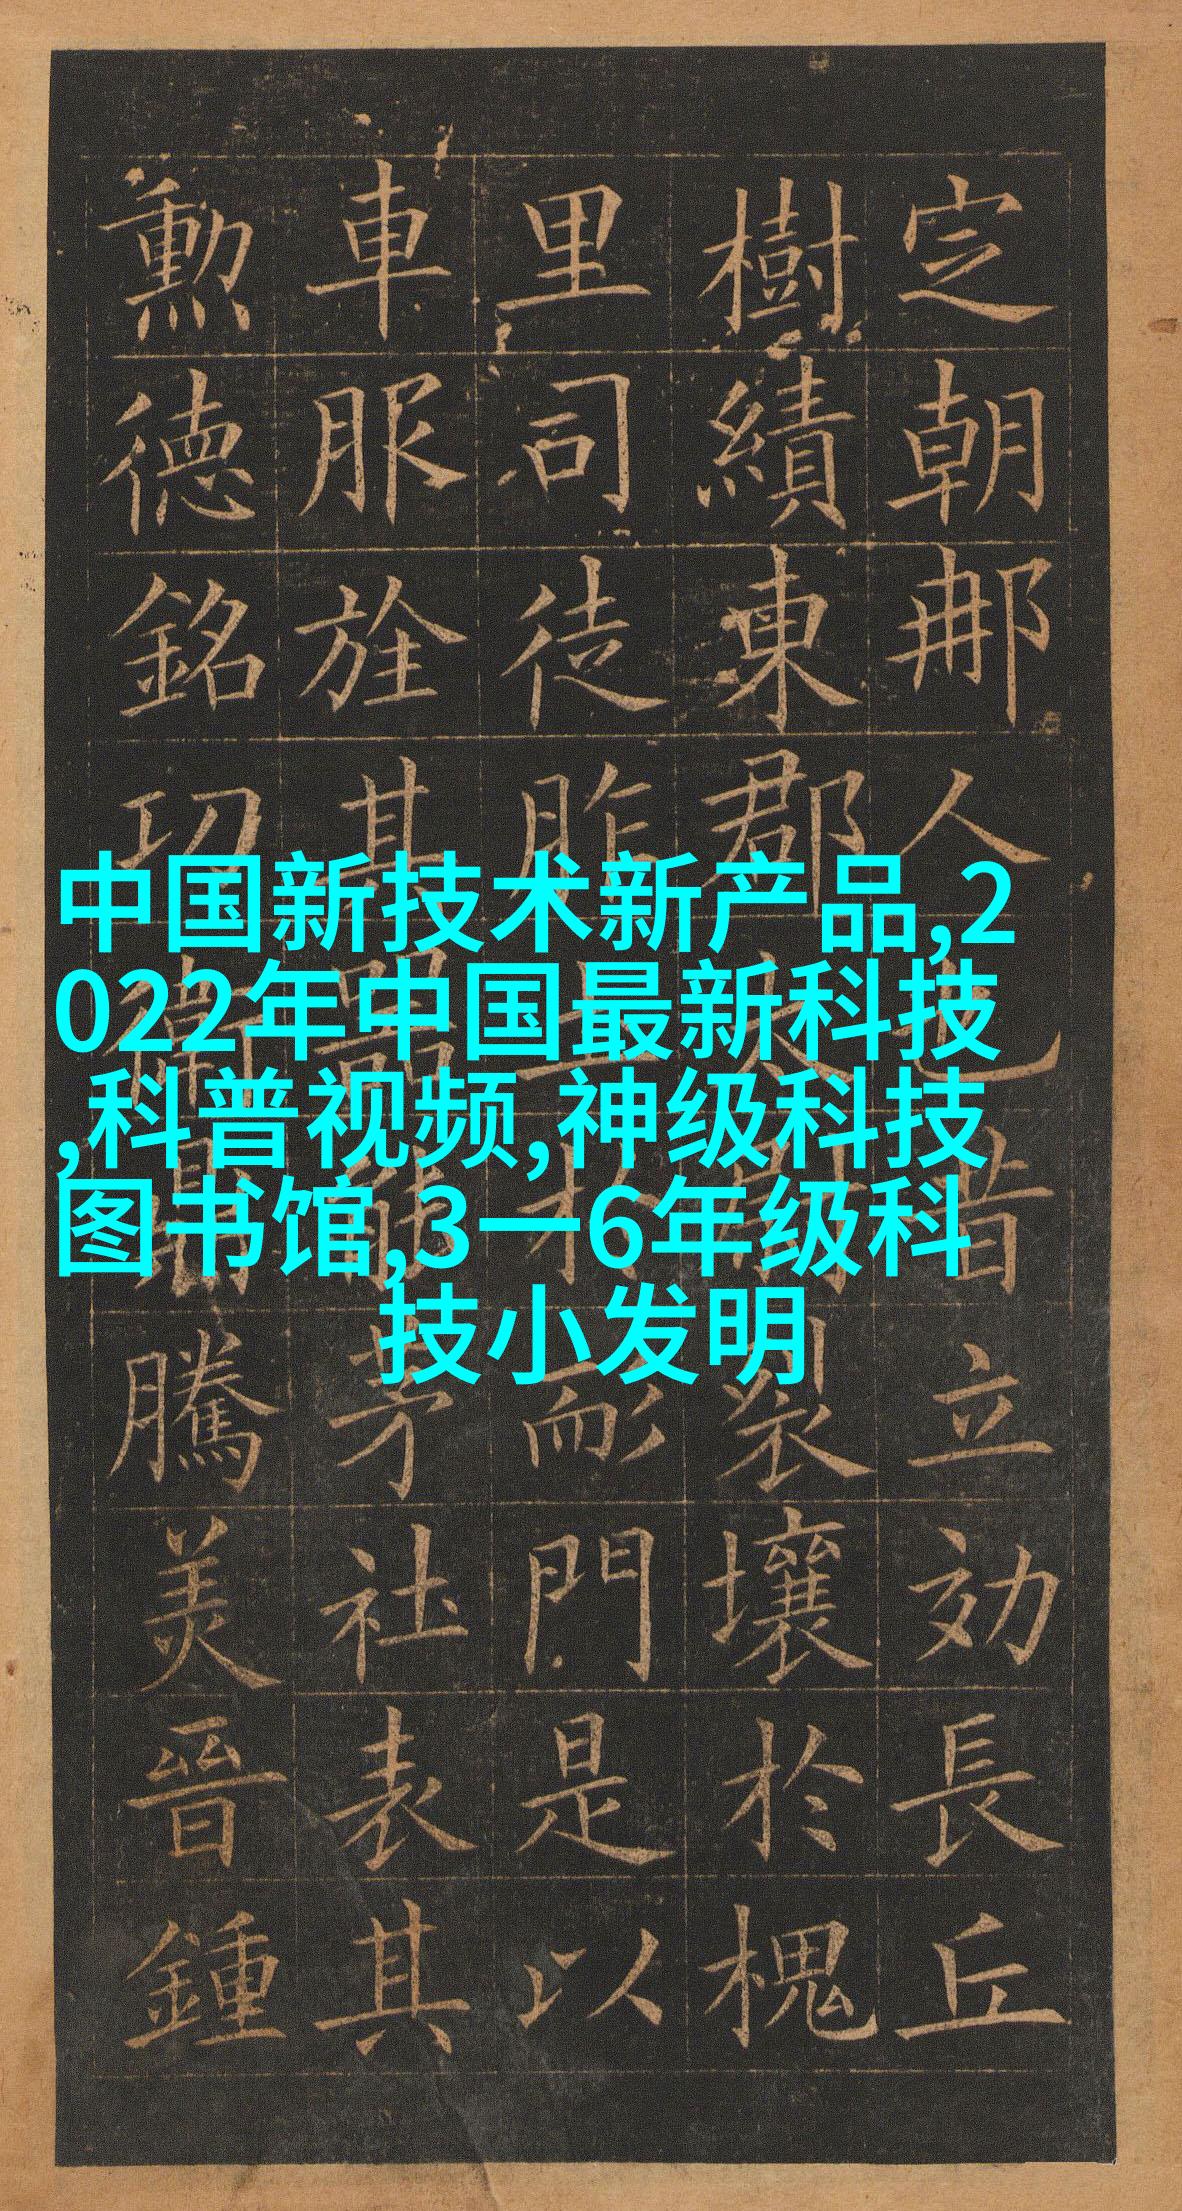 定朝那人也昔立効長丘
樹績東郡太尉裂壤於槐
里司徒胙土於耏門是以
車服旌其器能茅社表其
勲德銘功衛鼎騰美晉鍾
中国新技术新产品,2
022年中国最新科技
,科普视频,神级科技
图书馆,3一6年级科
技小发明